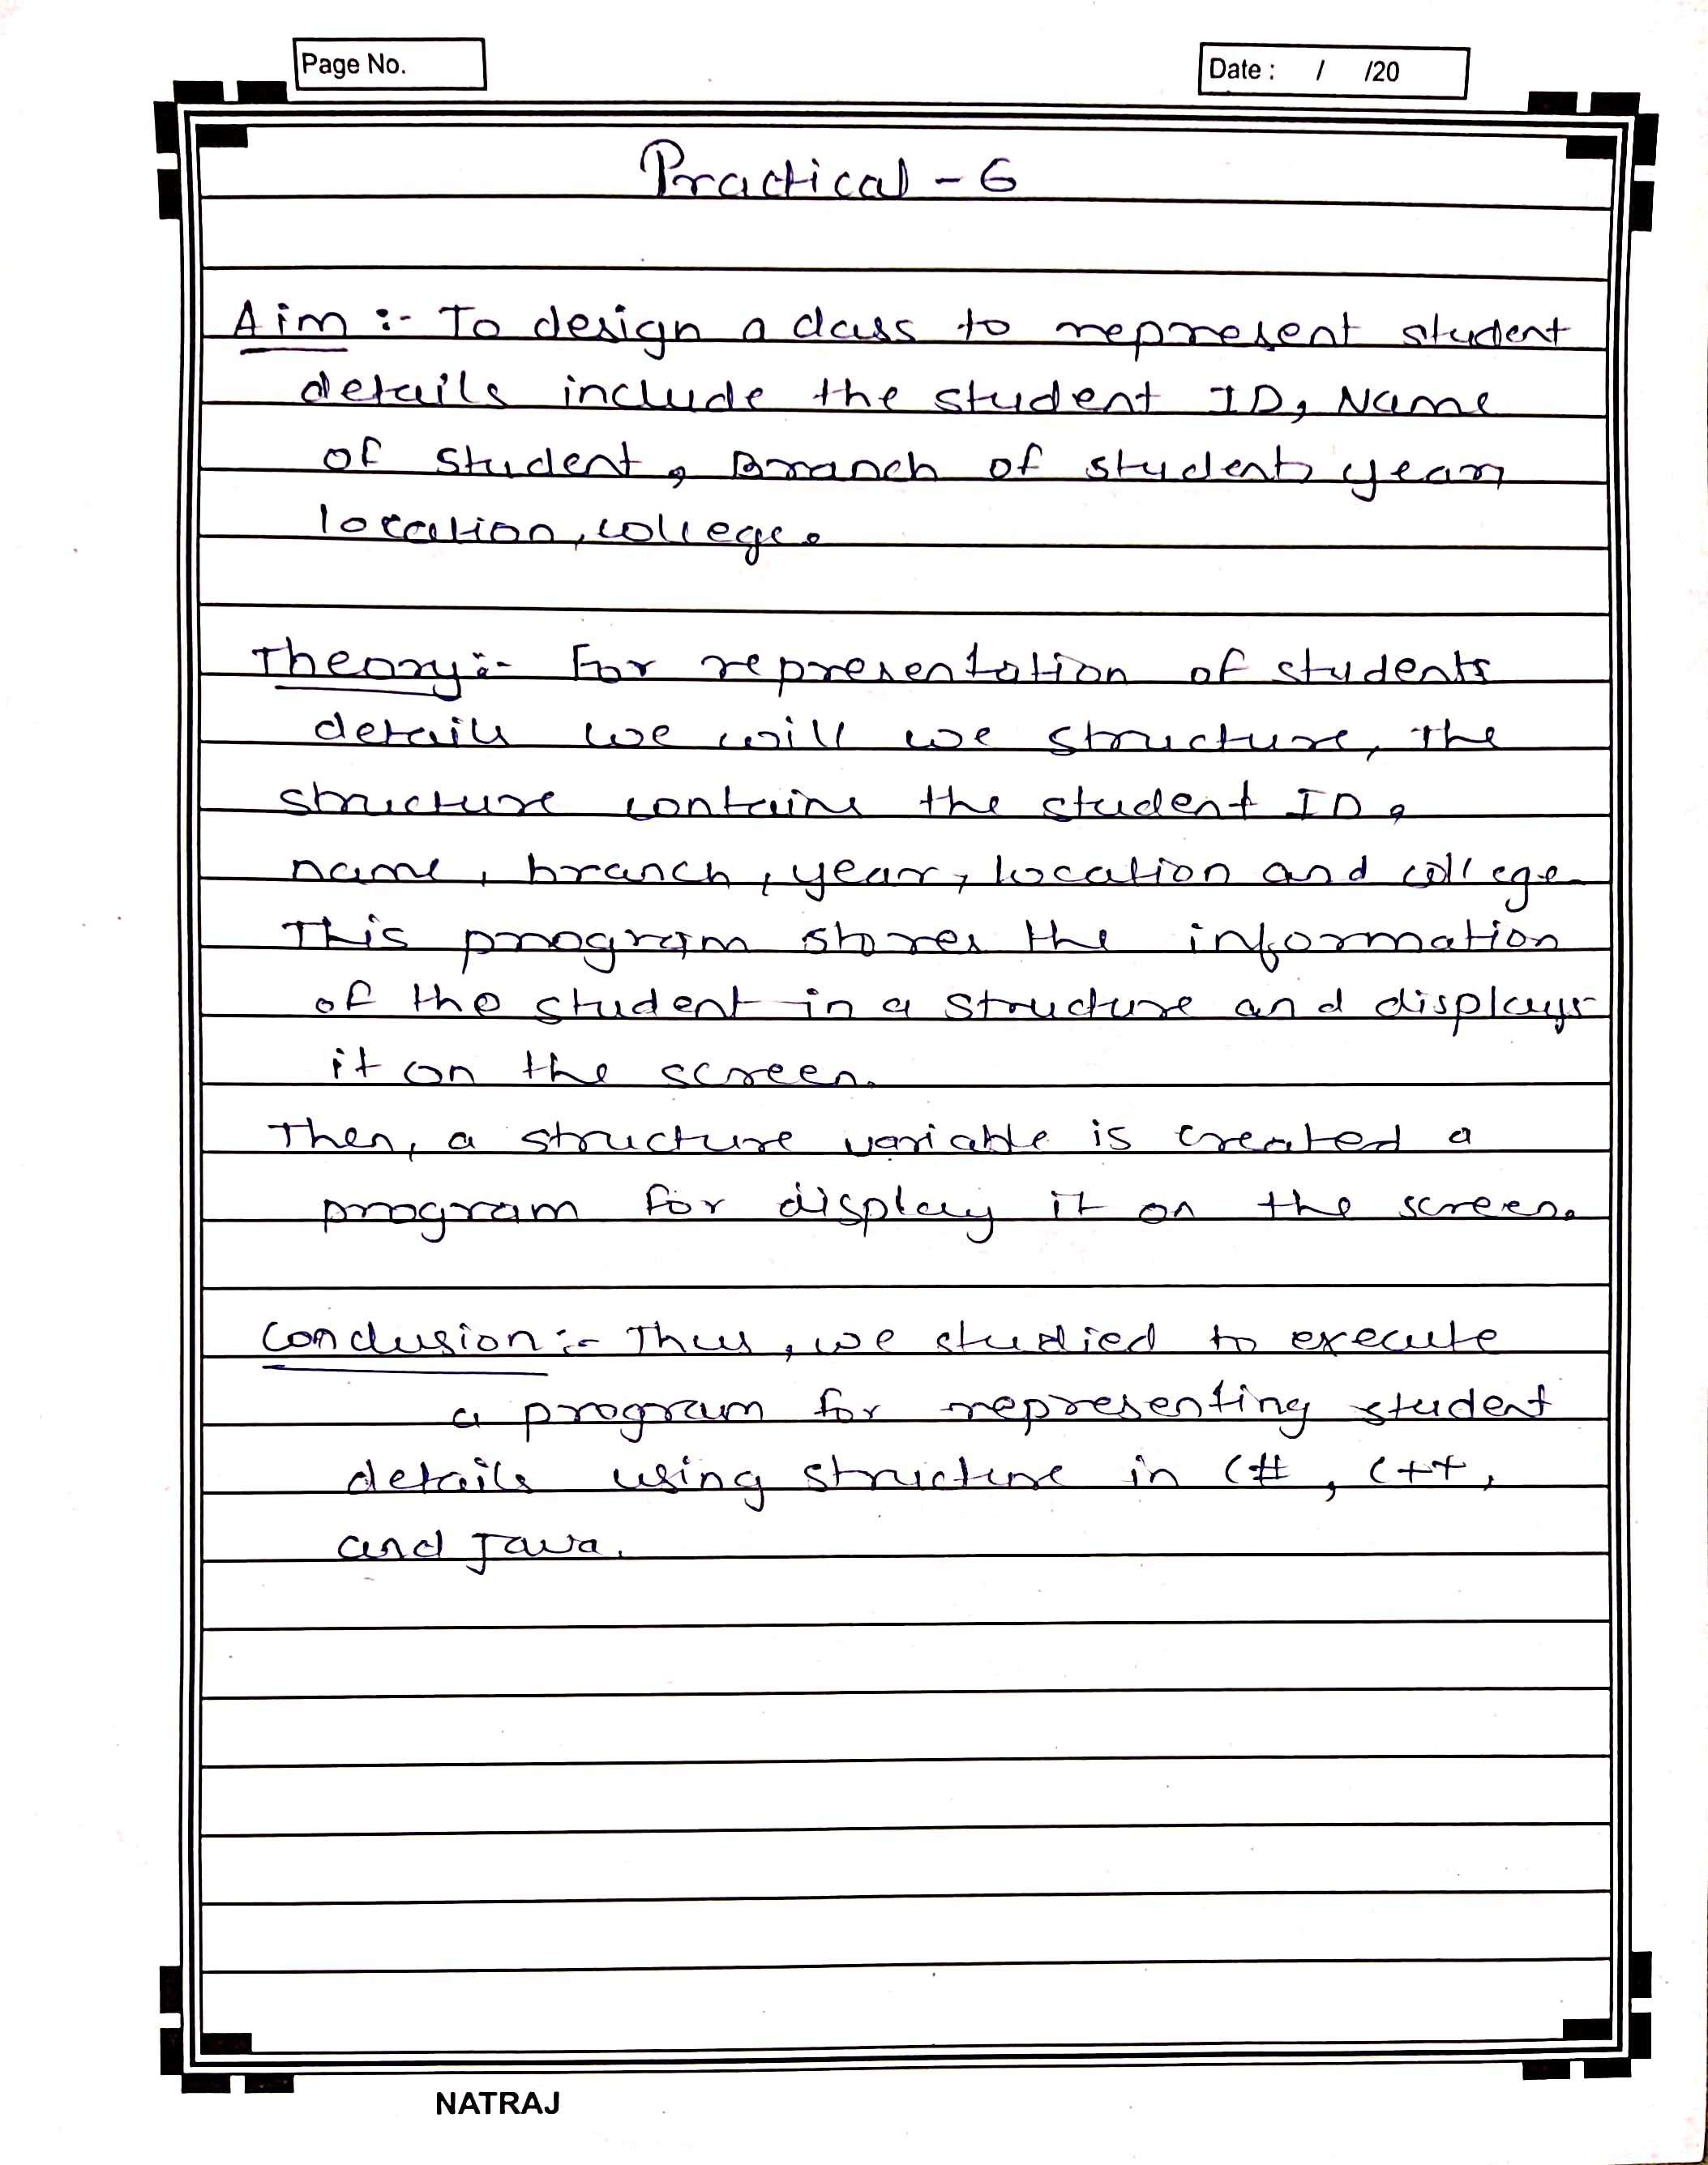 Page No.
Date : / /20
Practical - 6
Aim :- To design a class to represent student
details include the student ID, Name
of student, Branch of student, year
location, college.
Theory:- For representation of students
details we will we structure, the
structure contains the student ID,
name, branch, year, location and college
This program stores the information
of the student in a structure and displays
it on the screen.
Then, a structure variable is created a
program for display it on the screen.
Conclusion :- Thus, we studied to execute
a program for representing student
details using structure in C#, C++,
and Java.
NATRAJ